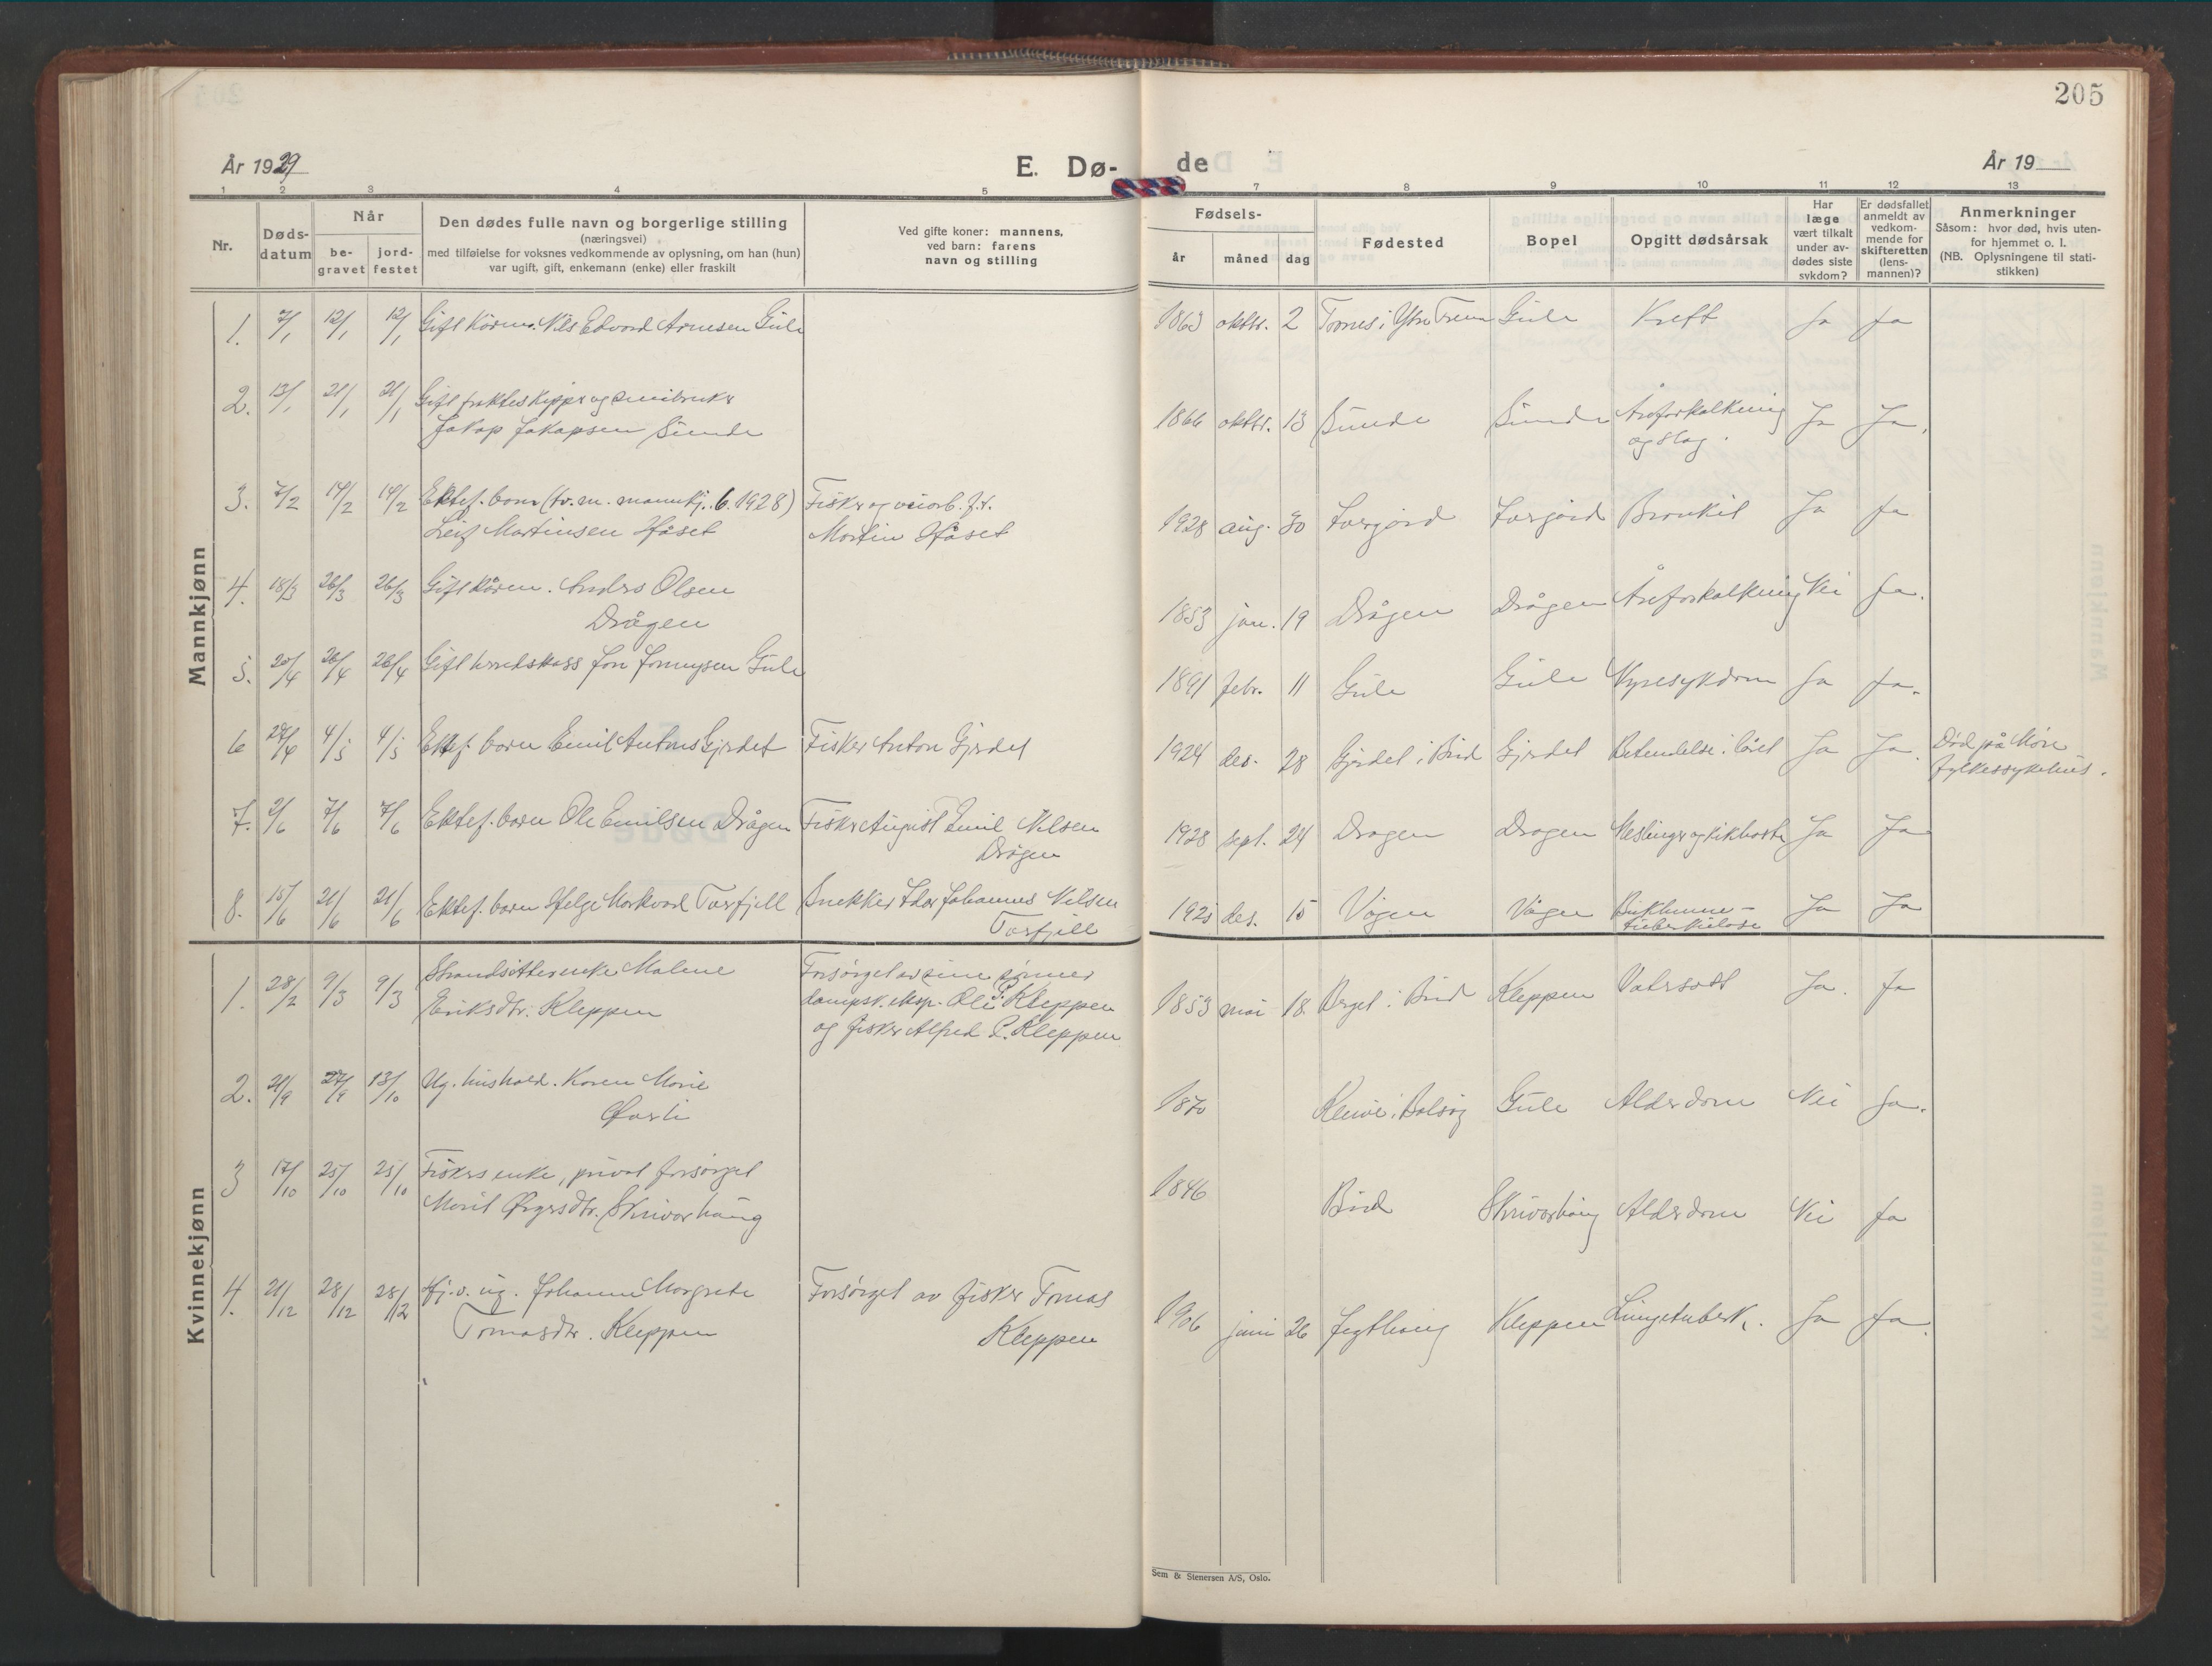 205
År 1929
E. Dø-
de
År 19
1 2 3 4 5 7 8 9 10 11 12 13
Nr.
Døds-
datum
Når
be-
gravet
jord-
festet
Den dødes fulle navn og borgerlige stilling
(næringsvei)
med tilføielse for voksnes vedkommende av oplysning, om han (hun)
var ugift, gift, enkemann (enke) eller fraskilt
Ved gifte koner: mannens,
ved barn: farens
navn og stilling
Fødsels-
år
måned
dag
Fødested
Bopel
Opgitt dødsårsak
Har
læge
vært tilkalt
under av-
dødes siste
sykdom?
Er dødsfallet
anmeldt av
vedkom-
mende for
skifteretten
(lens-
mannen)?
Anmerkninger
Såsom: hvor død, hvis uten-
for hjemmet o. l.
(NB. Oplysningene til stati-
stikken)
Mannkjønn
1. 7/1 12/1 12/1 Gift Nils Edvard Arnesen Gule 1863 oktbr. 2 Tornes i Ytre Fræna Gule Kreft Ja Ja
2. 13/1 21/1 21/1 Gift frakteskipper og
Jakop Jakopsen Sunde 1866 oktbr. 13 Sunde Sunde Åreforkalkning Ja Ja.
og slag.
3. 7/2 14/2 14/2 Ektef. barn (tv. m. mannkj. 6. 1928) Fisker og veiarb. f.t.
Leif Martinsen Håset Martin Håset 1928 aug. 30 Farstad Bronkit Ja Ja
4. 18/3 26/3 26/3 Gift Anders Olsen
Drågen 1853 jan. 19 Drågen Drågen Åreforkalkning Nei Ja.
5. 20/4 26/4 26/4 Gift Jon Jonnysen Gule 1891 febr. 11 Gule Gule Nyresykdom Ja Ja.
6 27/4 4/5 4/5 Ektef. barn Emil Antons Gjerdet Fisker Anton Gjerdet 1924 des. 28 Gjerdet i Bud Gjerdet Betendelse i låret Ja Ja. Død på Møre
fylkessykehus.
7. 2/6 7/6 7/6 Ektef. barn Ole Emilsen Drågen Fisker August Emil Nilsen
Drågen 1928 sept. 24 Drågen Drågen Meslinger og kikhoste Ja Ja
8. 15/6 21/6 21/6 Ektef. barn Helge Markvard Torfjell Snekker Johannes Nilsen
Torfjell 1925 des. 15 Vågen Vågen Bukhinne-
tuberkulose Ja Ja
Kvinnekjønn
1. 28/2 9/3 9/3 Strandsitterenke Malene Forsørget av sine sønner
Eriksdtr. Kleppen dampsk. eksp. Ole P. Kleppen
og fisker Alfred P. Kleppen 1853 mai 18. Berget i Bud Kleppen Vatersott Ja. Ja
2. 21/9 27/9 13/10 Ug. hushold. Karen Marie
1870 Kleive i Bolsøy Gule Alderdom Nei Ja.
3 17/10 25/10 25/10 Fiskers enke, privat forsørget
Marit Skriverhaug 1846 Bud Skriverhaug Alderdom Nei Ja
4. 21/12 28/12 28/12 Hj. v. ug. Johanne Margrete Forsørget av fisker Tomas
Tomasdtr. Kleppen Kleppen 1906 juni 26 Jegthaug Kleppen Lungetuberk. Ja Ja.
Sem & Stenersen A/S, Oslo.